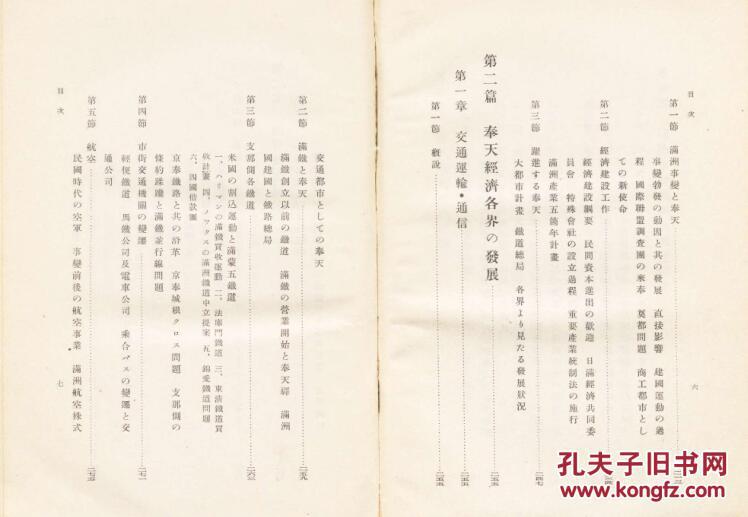 目次
六
第一節 滿洲事變と奉天
事變勃發の動因と其の發展 直接影響 建國運動の過
程 國際聯盟調査團の來奉 奠都問題 商工都市とし
ての新使命
第二節 經濟建設工作
經濟建設綱要 民間資本進出の歡迎 日滿經濟共同委
員會 特殊會社の設立過程 重要產業統制法の施行
滿洲產業五箇年計畫
第三節 躍進する奉天 二四七
大都市計畫 鐵道總局 各界より見たる發展狀況
第二篇 奉天經濟各界の發展
第一章 交通運輸・通信 二五五
第一節 槪說 二五五
交通都市としての奉天
第二節 滿鐵と奉天 二五九
滿鐵創立以前の鐵道 滿鐵の營業開始と奉天驛 滿洲
國建國と鐵路總局
第三節 支那側各鐵道 二六三
米國の割込運動と滿蒙五鐵道
一、ハリマンの滿鐵買收運動 二、法庫門鐵道 三、東淸鐵道買
收計畫 四、ノックスの滿洲鐵道中立提案 五、錦愛鐵道問題
六、四國借款團
京奉鐵路と其の沿革 京奉城根クロス問題 支那側の
條約蹂躪と滿鐵並行線問題
第四節 市街交通機關の變遷 二七一
輕便鐵道 馬鐵公司及電車公司 乘合バスの變遷と交
通公司
第五節 航空 二七五
民國時代の空軍 事變前後の航空事業 滿洲航空株式
目次
七
孔夫子旧书网
www.kongfz.com